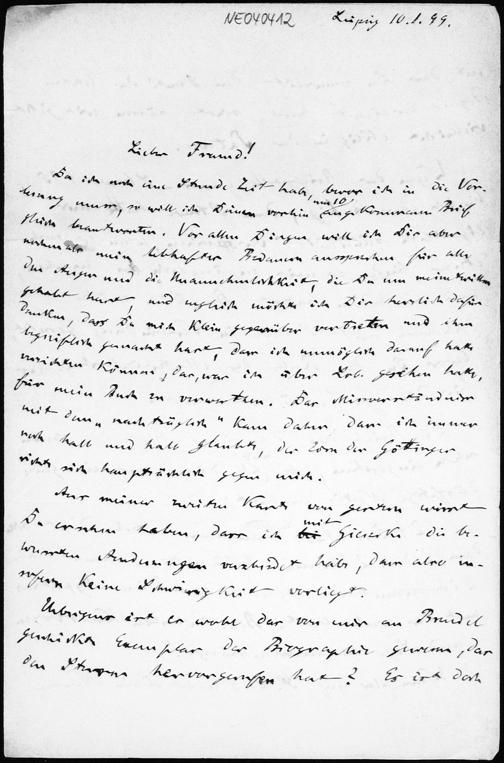 NE040412
Leipzig 10.1.99.
Lieber Freund!
Da ich noch eine Stunde Zeit habe, bevor ich in die Vor-
lesung muss, so will ich Deinen vorhin angekommenen Brief
gleich beantworten. Vor allen Dingen will ich Dir aber
nochmals mein lebhaftes Bedauern aussprechen für alle
den Aerger und die Unannehmlichkeit, die Du um meinetwillen
gehabt hast, und zugleich möchte ich Dir herzlich dafür
danken, dass Du mich Klein gegenüber vertreten und ihm
begreiflich gemacht hast, dass ich unmöglich darauf hatte
verzichten können, das, was ich über Lob. gesehen hatte,
für mein Buch zu verwerten. Das Missverständniss
mit dem "nachträglich" kam daher, dass ich immer
noch halb und halb glaubte, der Zorn der Göttinger
richte sich hauptsächlich gegen mich.
Aus meiner zweiten Karte von gestern wirst
Du ersehen haben, dass ich mit Giesecke die be-
wussten Aenderungen verabredet habe, dass also in-
sofern keine Schwierigkeit vorliegt.
Uebrigens ist es wohl das von mir an Brendel
geschickte Exemplar der Biographie gewesen, das
den Sturm hervorgerufen hat? Es ist doch